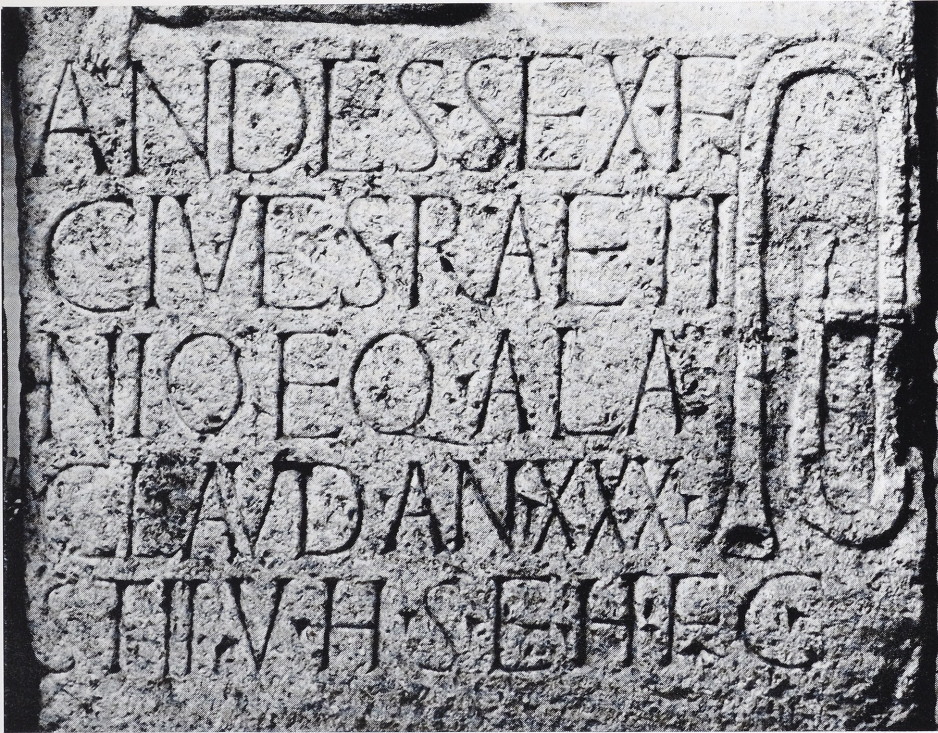 ANDES·SEX·F
CIVES·RAETI
NIO·EQ·ALA
CLAVD·AN·XXX·
STIP·V·H·S·E·H·F·C